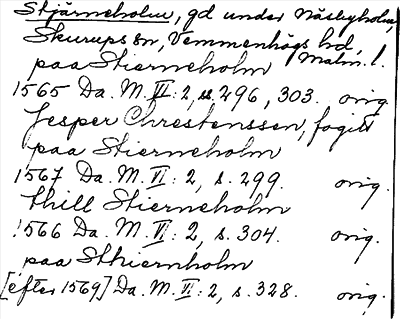 Stjärneholm, gd under Näsbyholm,
Skurups sn, Vemmenhögs hd,
Malm. l.
paa Stierneholm
1565 Da. M. VI: 2, s. 296, 303. orig.
Jesper Chrestenssen, fogitt
paa Stierneholm
1567 Da. M. VI: 2, s. 299. orig.
thill Stierneholm
1566 Da. M. VI: 2, s. 304. orig.
paa Sthiernholm
[efter 1569] Da. M. VI: 2, s. 328. orig.